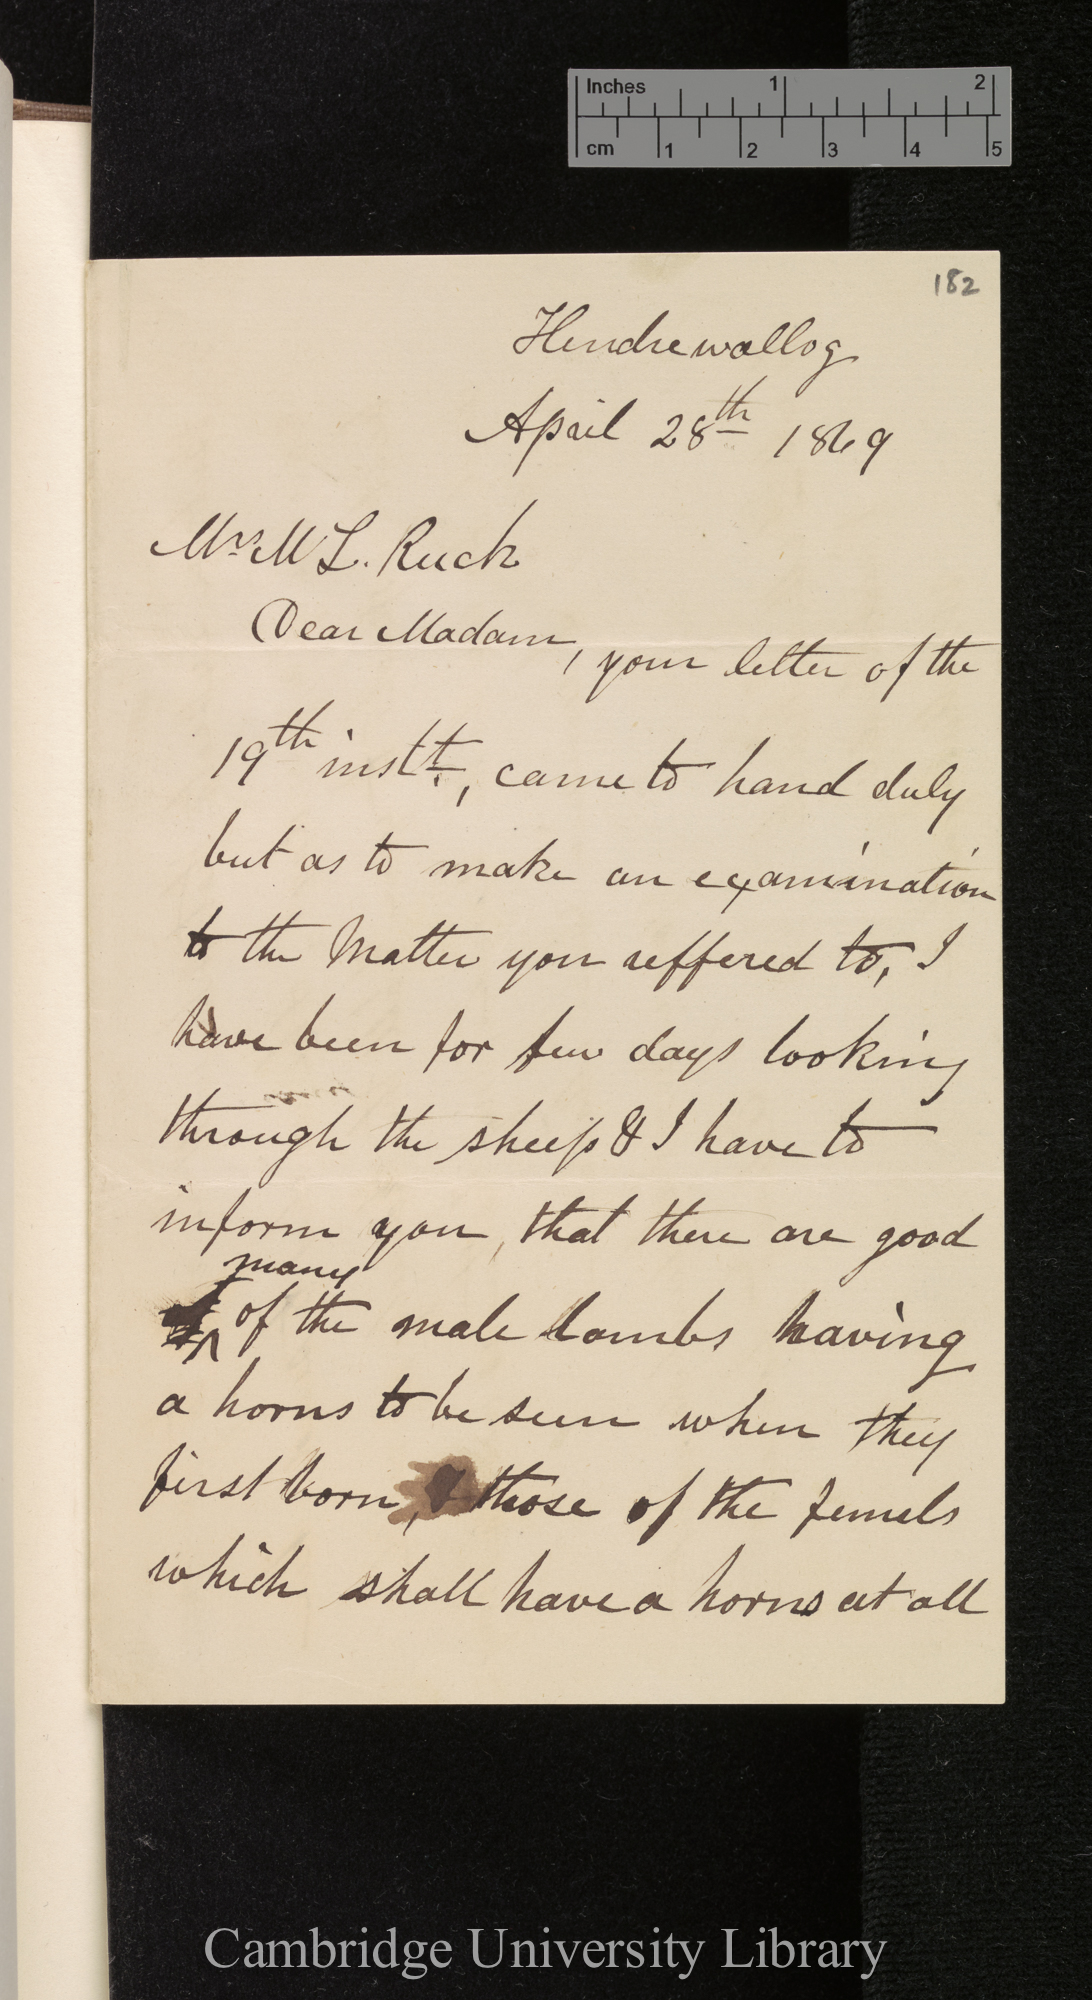 Inches 1 2
cm 1 2 3 4 5
182
Hendrewallog
April 28th 1869
Mrs M L. Ruck
Dear Madam, your letter of the
19th instt., came to hand duly
but as to make an examination
to the Matter you reffered to, I
have been for few days looking
through the sheep & I have to
inform you, that there are good
many
of the male lambs having
a horns to be seen when they
first born, & those of the femels
which shall have a horns at all
Cambridge University Library